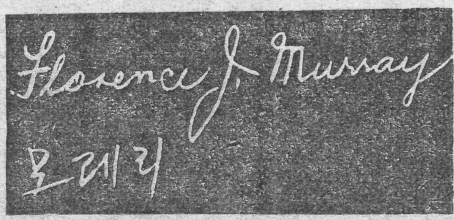 Florence J. Murray
모레리